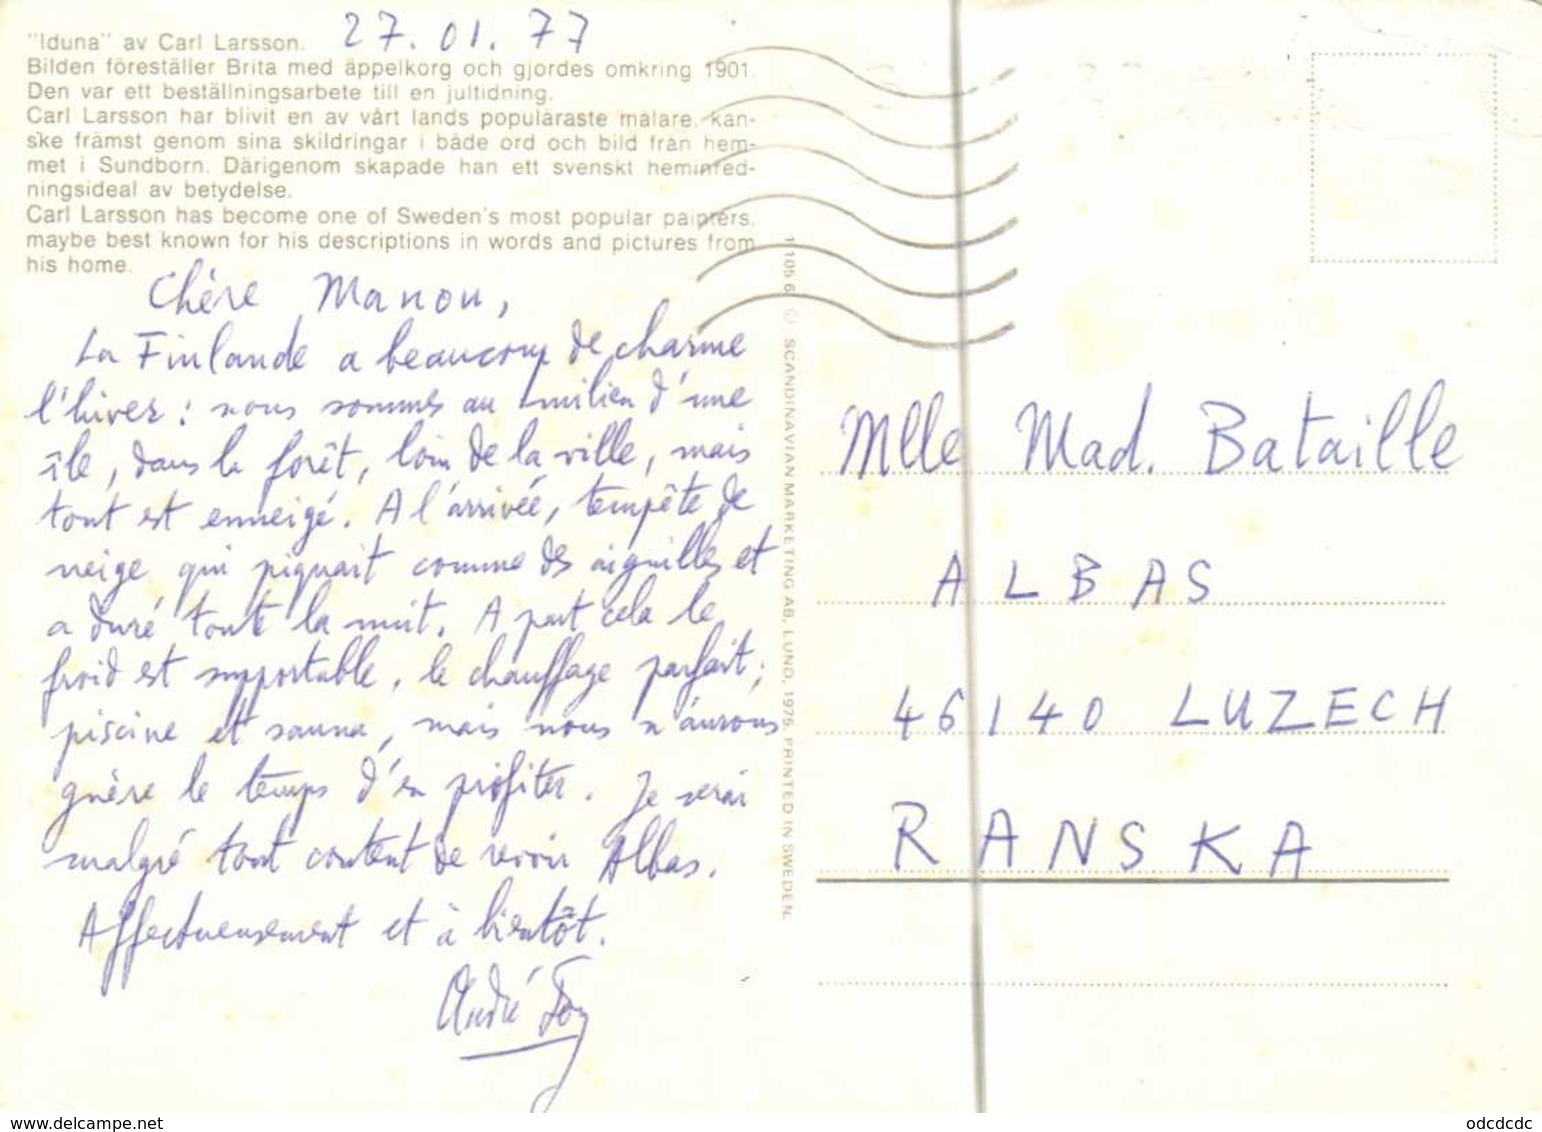 "Iduna" av Carl Larsson.
27.01.77
Bilden föreställer Brita med äppelkorg och gjordes omkring 1901.
Den var ett beställningsarbete till en jultidning.
Carl Larsson har blivit en av vårt lands populäraste målare, kan-
ske främst genom sina skildringar i både ord och bild från hem-
met i Sundborn. Därigenom skapade han ett svenskt heminred-
ningsideal av betydelse.
Carl Larsson has become one of Sweden's most popular painters,
maybe best known for his descriptions in words and pictures from
his home.
Chère Manou,
La Finlande a beaucoup de charme
l'hiver : nous sommes au milieu d'une
île, dans la forêt, loin de la ville, mais
tout est enneigé. A l'arrivée, tempête de
neige qui piquait comme des aiguilles et
a duré toute la nuit. A part cela le
froid est supportable, le chauffage parfait ;
piscine et sauna, mais nous n'aurons
guère le temps d'en profiter. Je serai
malgré tout content de revoir Albas.
Affectueusement et à bientôt.
André
1105 6 © SCANDINAVIAN MARKETING AB, LUND, 1975. PRINTED IN SWEDEN.
Mlle Mad. Bataille
ALBAS
46140 LUZECH
RANSKA
www.delcampe.net
odcdcdc